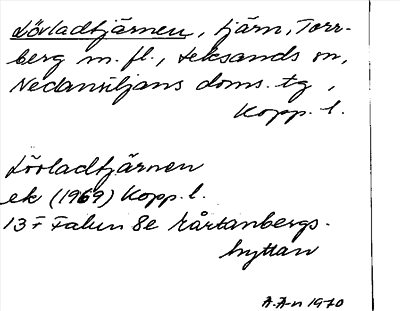 Lövladtjärnen, tjärn, Torr-
berg m. fl., Leksands sn,
Nedansiljans doms. tg,
Kopp. l.
Lövladtjärnen
ek (1969) Kopp. l.
13 F Falun 8e Rårtanbergs-
hyttan
A.A-n 1970